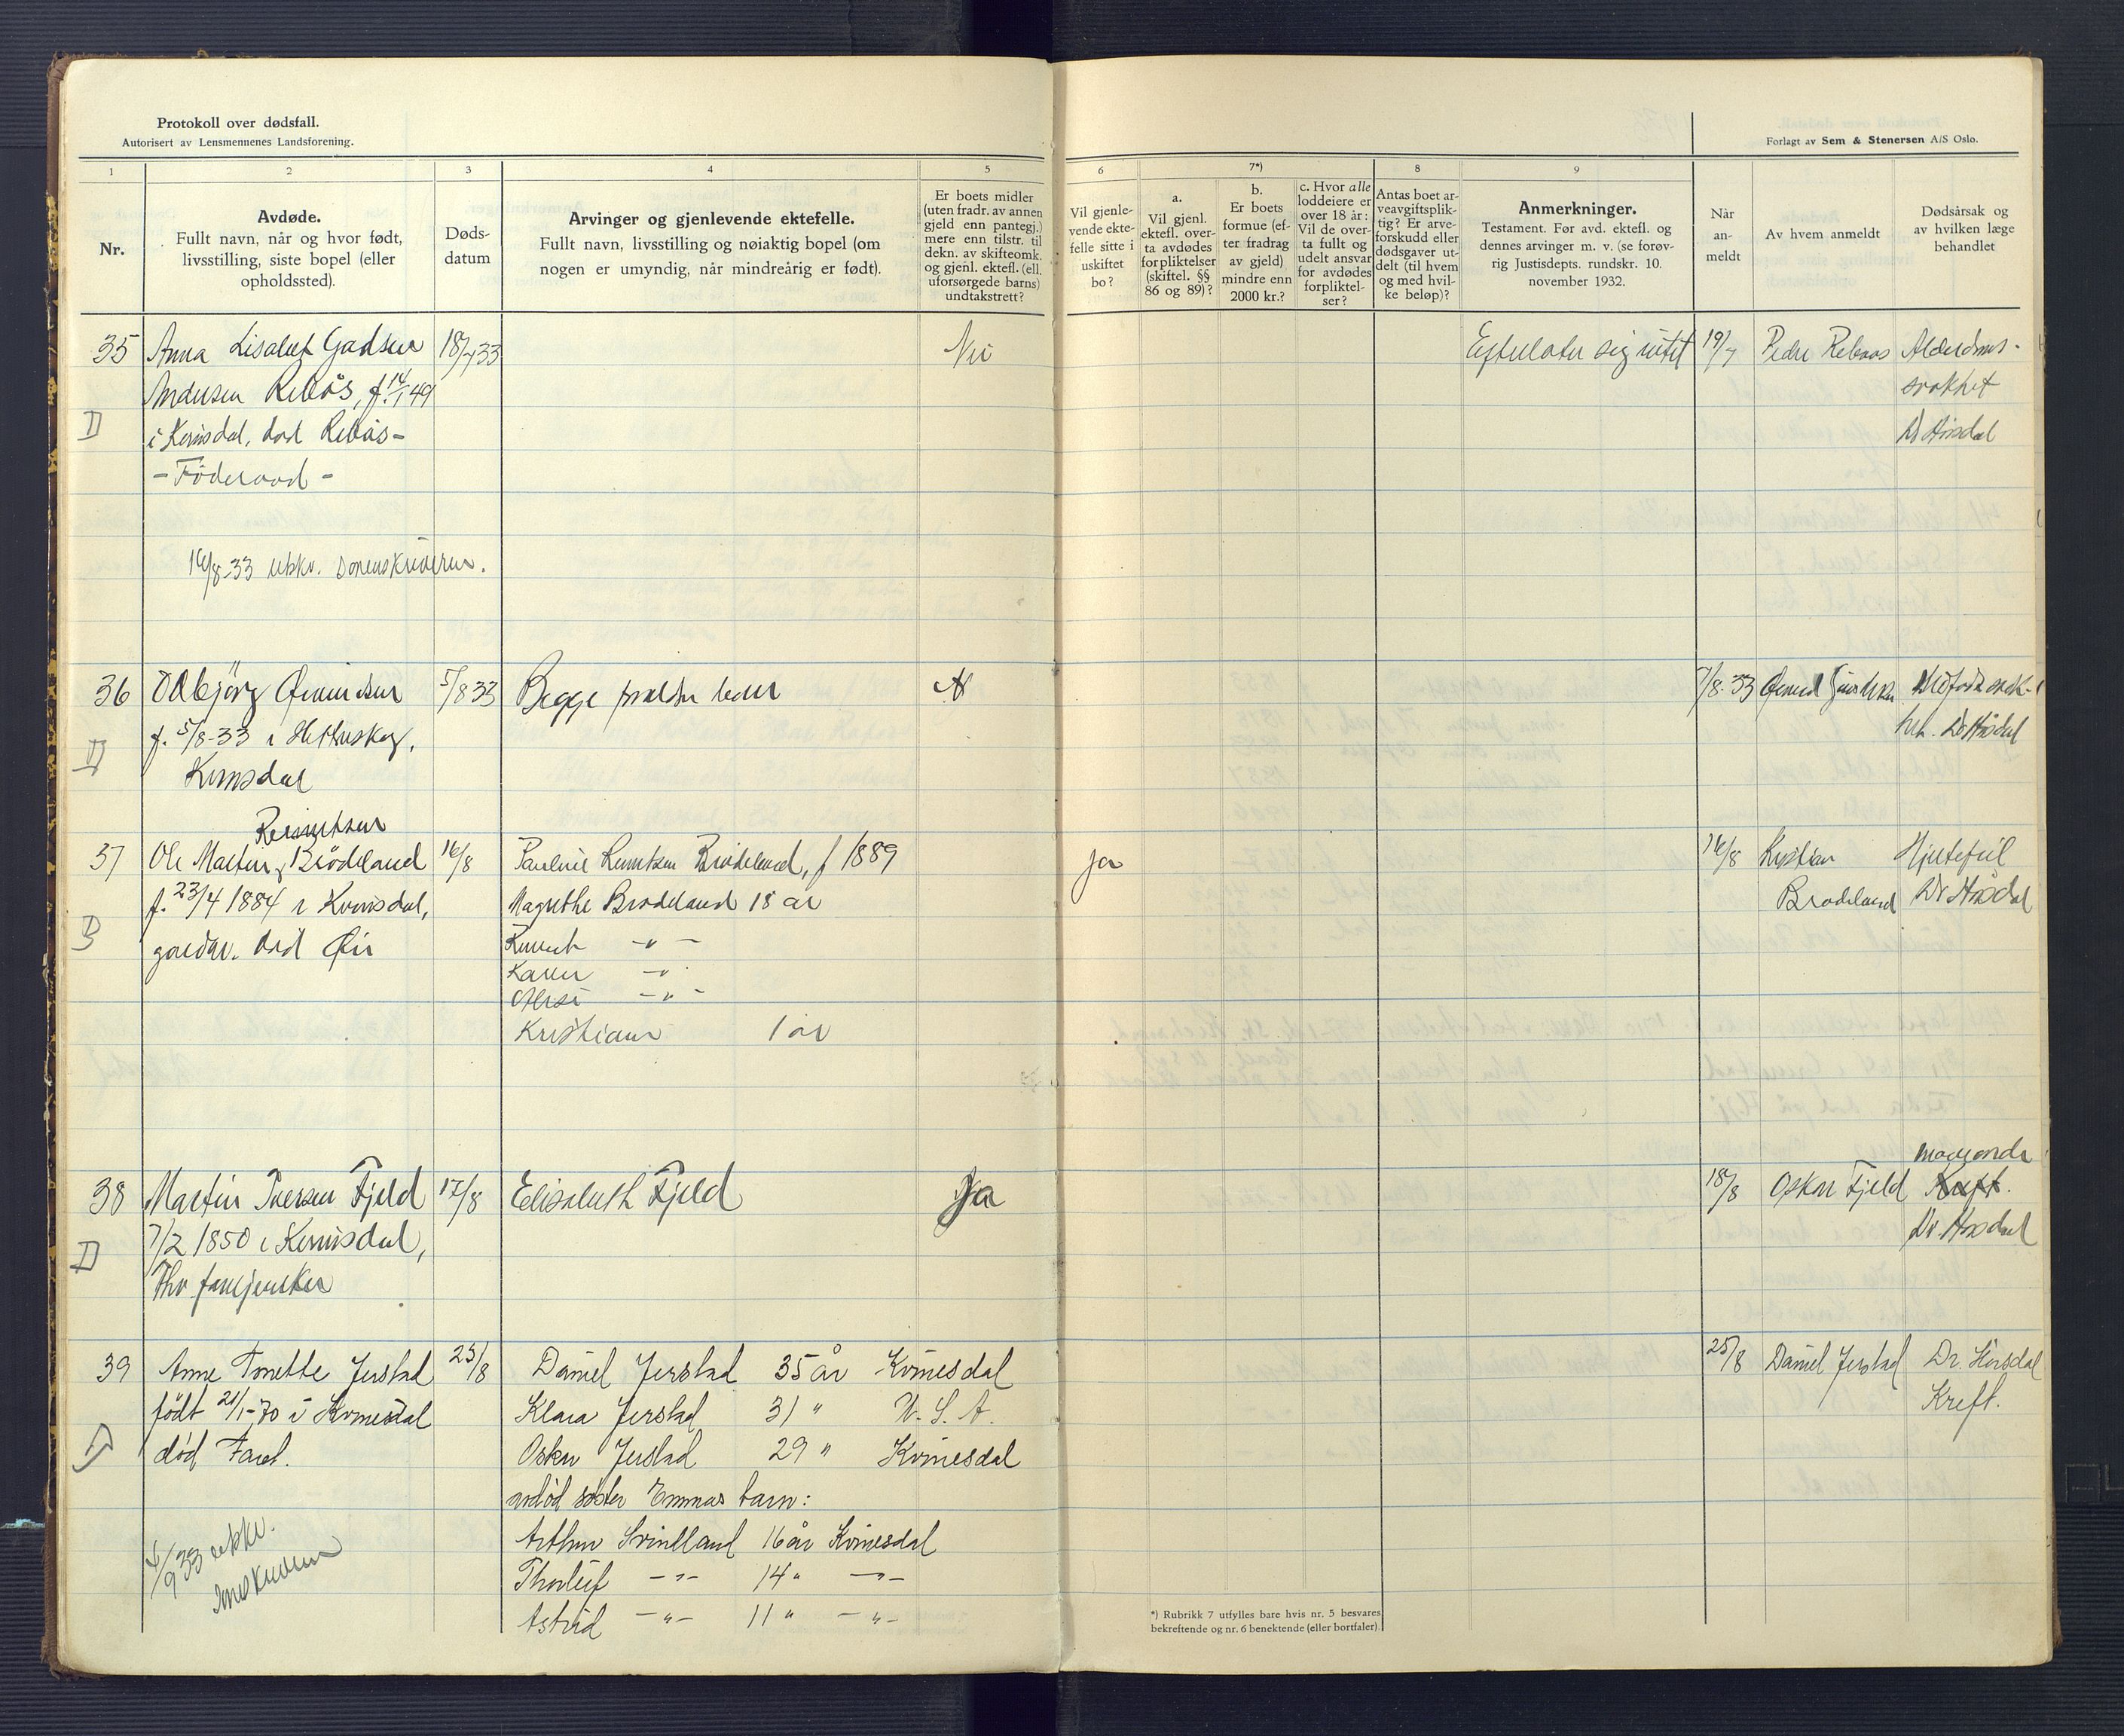 Protokoll over dødsfall.
Autorisert av Lensmennenes Landsforening.
Forlagt av Sem & Stenersen A/S Oslo.
1
2
3
4
5
6
7*)
8
9
Nr.
Avdøde.
Fullt navn, når og hvor født,
livsstilling, siste bopel (eller
opholdssted).
Døds-
datum
Arvinger og gjenlevende ektefelle.
Fullt navn, livsstilling og nøiaktig bopel (om
nogen er umyndig, når mindreårig er født).
Er boets midler
(uten fradr. av annen
gjeld enn pantegj.)
mere enn tilstr. til
dekn. av skifteomk.
og gjenl. ektefl. (ell.
uforsørgede barns)
undtakstrett?
Vil gjenle-
vende ekte-
felle sitte i
uskiftet
bo?
a.
Vil gjenl.
ektefl. over-
ta avdødes
forpliktelser
(skiftel. §§
86 og 89)?
b.
Er boets
formue (ef-
ter fradrag
av gjeld)
mindre enn
2000 kr.?
c. Hvor alle
loddeiere er
over 18 år:
Vil de over-
ta fullt og
udelt ansvar
for avdødes
forpliktel-
ser?
Antas boet ar-
veavgiftsplik-
tig? Er arve-
forskudd eller
dødsgaver ut-
delt (til hvem
og med hvil-
ke beløp)?
Anmerkninger.
Testament. Før avd. ektefl. og
dennes arvinger m. v. (se forøv-
rig Justisdepts. rundskr. 10.
november 1932.
Når
an-
meldt
Av hvem anmeldt
Dødsårsak og
av hvilken læge
behandlet
35 Anna Lisabet Gadsen 18/7 33 Nei Efterlater sig intet 19/7 Peder Rebaas Alderdoms-
Andersen Rebås, f. 14/1 49 svakhet
i Kvinsdal, død Rebås- Dr Hørsdal
- Föderaad -
16/8-33 utskr. sorenskriveren.
36 Odbjörg 5/8 33 Begge foreldre lever N 7/8-33
f. 5/8-33 i Dr Hørsdal
Kvinsdal
Reinertsen
37 Ole Martin Brödeland 16/8 Pauline Reinertsen Brödeland, f 1889 ja 16/8 Kristian Hjertefeil
f. 23/4 1884 i Kvinsdal, Magrethe Brödeland 18 år Brödeland Dr Hørsdal
gardbr. død Öie
Reinert -"-
Karen -"-
-"-
Kristiane 1 år
38 Martin Iversen Fjeld 17/8 Elisabeth Fjeld Ja 18/8 Oskar Fjeld Kreft.
7/2 1850 i Kvinsdal, Dr. Hørsdal
39 Anne Tonette Jerstad 23/8 Daniel Jerstad 35 år Kvinesdal 25/8 Daniel Jerstad Dr. Hørsdal
født 21/1-70 i Kvinesdal Klara Jerstad 31 " U. S. A. Kreft.
død Faret. Oskar Jerstad 29 " Kvinesdal
avdød søster Emmas barn:
Arthur Svindland 16 år Kvinesdal
Thorleif -"- 14 " -"-
Astrid -"- 11 " -"-
/9 33 utskr.
*) Rubrikk 7 utfylles bare hvis nr. 5 besvares
bekreftende og nr. 6 benektende (eller bortfaler).